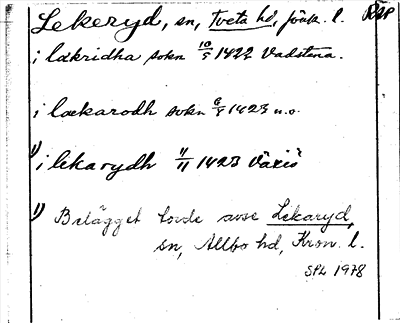 Lekeryd, sn, Tveta hd, Jönk. l. RAP
i lækridha sokn 10/5 1422 Vadstena.
i lækarodh sokn 6/8 1423 u.o.
1) i lekarydh 11/11 1423 Växiö
1) Belägget torde avse Lekaryd,
sn, Allbo hd, Kron. l.
SPL 1978